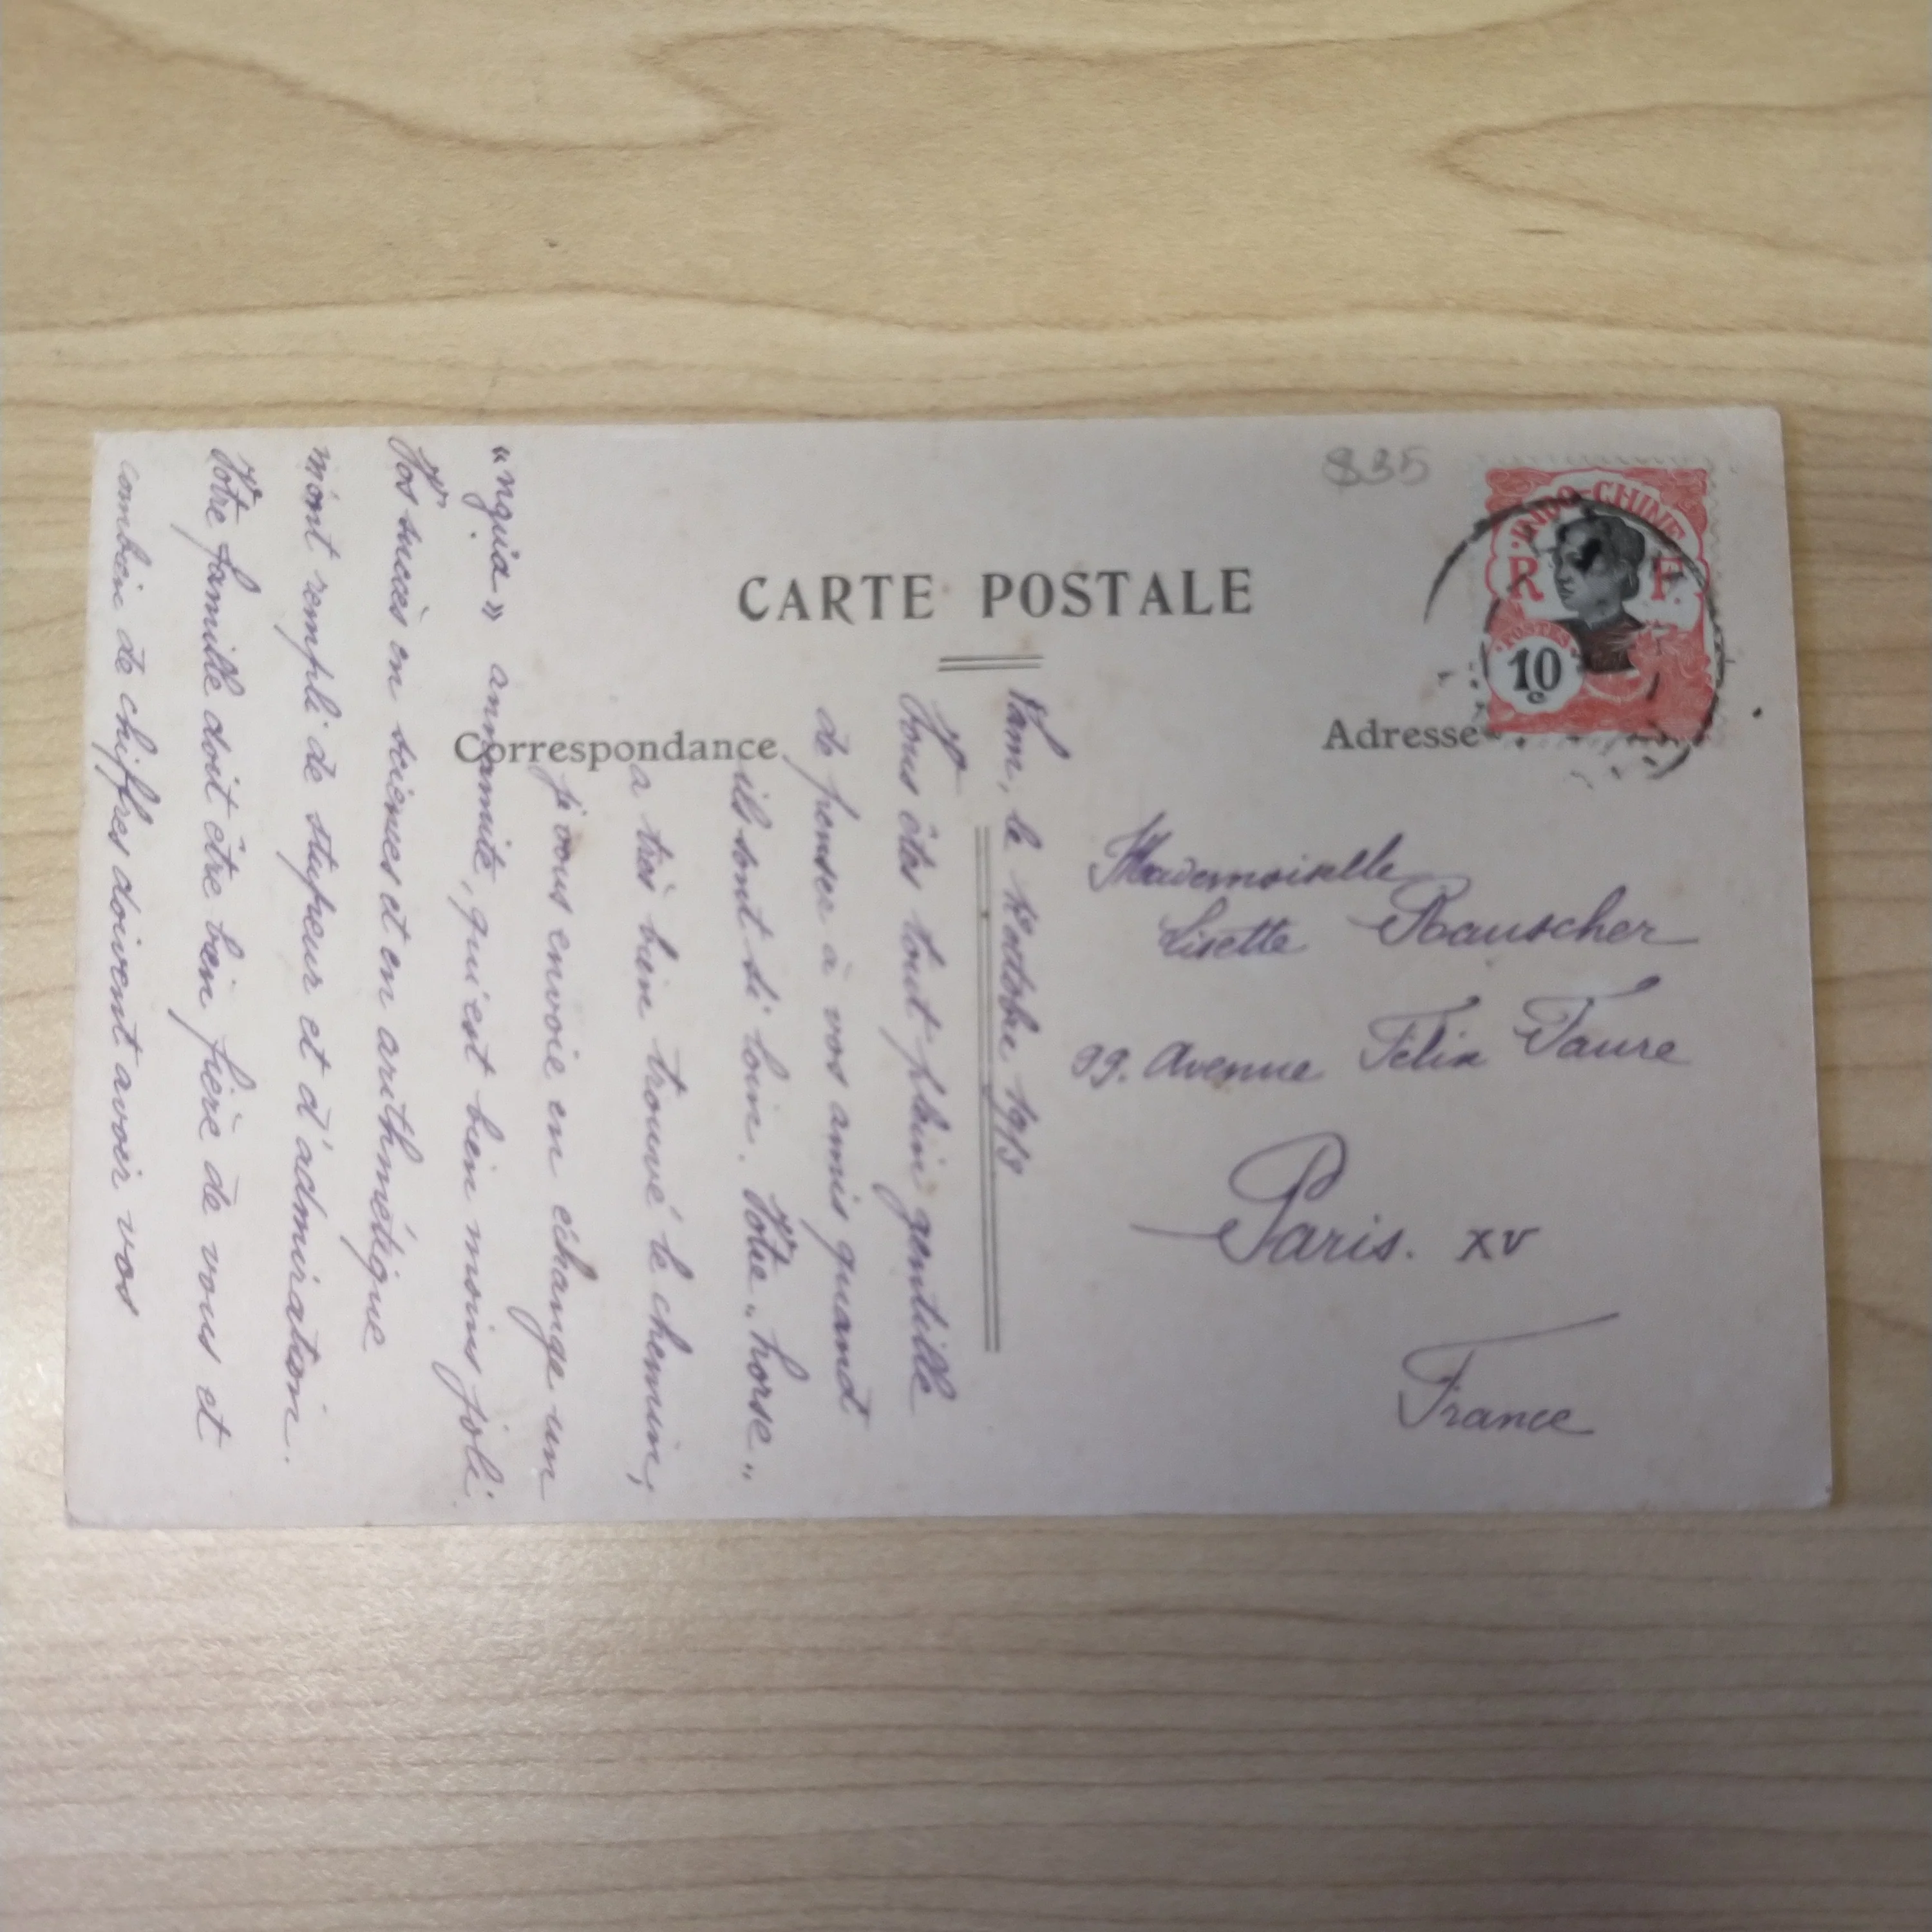 $35
INDO-CHINE
R F
POSTES
10
c
CARTE POSTALE
Correspondance
Adresse
Mademoiselle
Lisette Rauscher
99. Avenue Félix Faure
Paris. XV
France
le 1er octobre
Vous êtes tout plein gentille
de penser à vos amis quand
ils sont si loin. Votre "horse"
a très bien trouvé le chemin,
j'vous envoie en échange un
"ngùa" annamite, qui est bien moins joli.
Vos succès en sciences et en arithmétique
m'ont rempli de stupeur et d'admiration.
Votre famille doit être bien fière de vous et
combien de chiffres doivent avoir vos